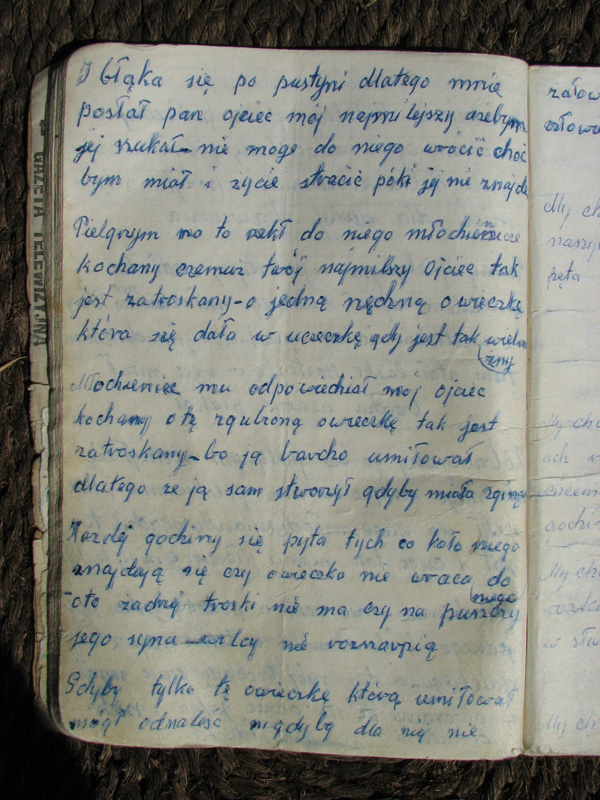 I błąka się po pustyni dlatego mnie
posłał pan ojciec mój najmilejszy ażebym
jej szukał – nie moge do niego wrócić choć
bym miał i życie stracić póki jej nie znajde
Pielgrzym na to rzekł do niego młodzieńcze
kochany czemuz twój najmilszy Ojciec tak
jest zatroskany – o jedną nędzną owieczkę
która się dała w ucieczkę gdy jest tak wielmo
żny
Młodzieniec mu odpowiedział moj ojciec
kochany o tę zgubioną owieczkę tak jest
zatroskany – bo ją bardzo umiłował
dlatego ze ją sam stworzył gdyby miała zginąć
Każdej godziny się pyta tych co koło niego
znajdają się czy owieczka nie wraca do
niego
oto zadnej troski nie ma czy na puszczy
jego syna – wilcy nie roznarpią
Gdyby tylko tę owieczkę którą umiłował
mógł odnaleść nigdyby dla niej nie
GAZETA TELEWIZYJNA
załow
człowie
My ch
naszy
pęta
My cho
ach
godzin
My cho
w stw
My ch